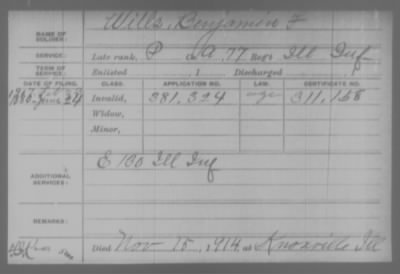 NAME OF SOLDIER: Wills, Benjamin F
SERVICE: Late rank, P Co A, 77 Reg't Ill Inf
TERM OF SERVICE: Enlisted 1 Discharged 1
DATE OF FILING. CLASS. APPLICATION NO. LAW. CERTIFICATE NO.
1880. June 24 Invalid, 381.324 311.168
Widow,
Minor,
ADDITIONAL SERVICES: E 130 Ill Inf
REMARKS:
Died Nov 15, 1914, at Knoxville Ill